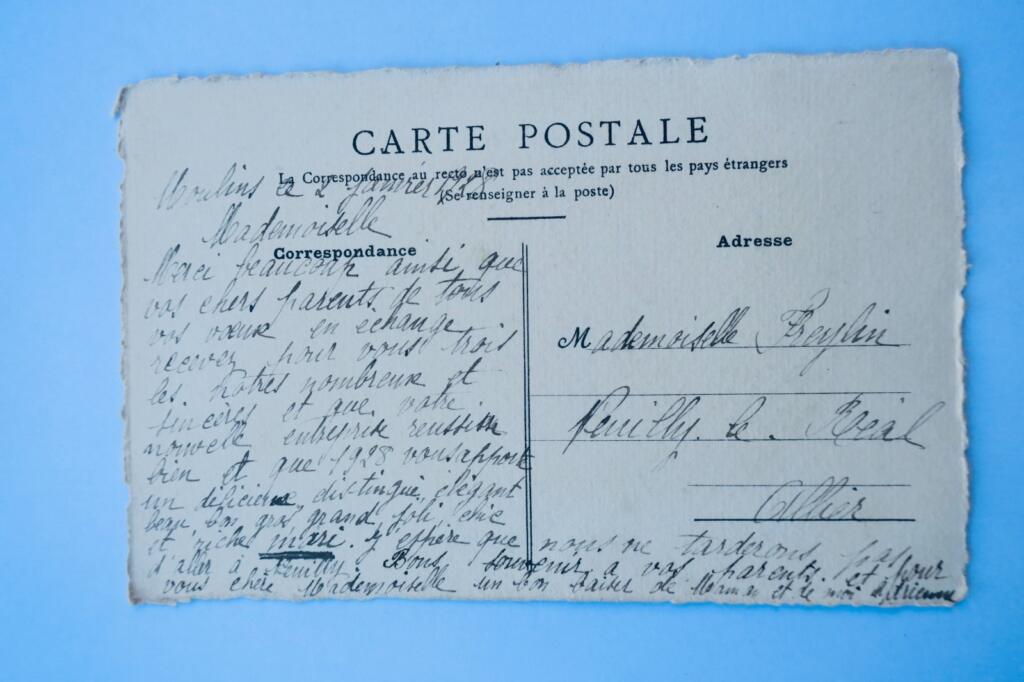 CARTE POSTALE
La Correspondance au recto n'est pas acceptée par tous les pays étrangers
(Se renseigner à la poste)
Moulins le 2 Janvier 1928
Mademoiselle
Correspondance
Merci beaucoup ainsi que
vos chers parents de tous
vos vœux en echange
recevez pour vous trois
les notres nombreux et
sincères et que votre
nouvelle entreprise reussisse
bien et que 1928 vous apporte
un délicieux, distingué, élégant
beau bon gros, grand, joli, chic
et riche mari. J'espère que nous ne tarderons pas
d'aller à Neuilly. Bons souvenir a vos parents. et pour
vous chère Mademoiselle un bon baiser de Maman et de moi Adrienne
Adresse
Mademoiselle Freylin
Neuilly. le. Réal
Allier